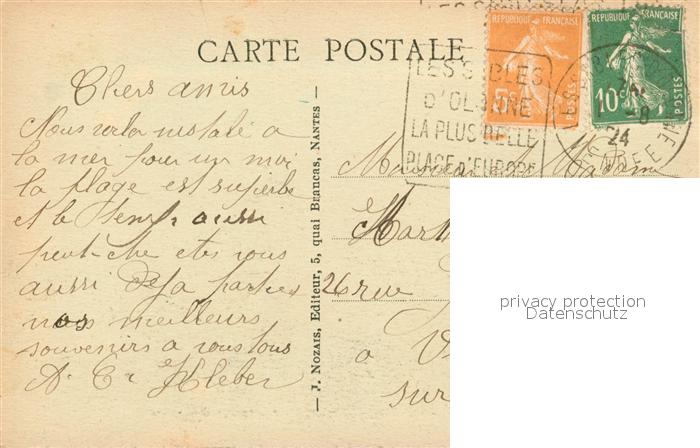 CARTE POSTALE
REPUBLIQUE FRANÇAISE
5c POSTES
REPUBLIQUE FRANÇAISE
10c POSTES
LES SABLES
D'OLONNE
LA PLUS BELLE
PLAGE D'EUROPE
24
VENDEE
Chers amis
Nous voila installé a
la mer pour un moi
la plage est superbe
et le temps aussi
peut-etre etes vous
aussi deja parties
nos meilleurs
souvenirs a vous tous
A. Kleber
J. NOZAIS, Editeur, 5, quai Brancas, NANTES
Monsieur Madame
26 rue
a V
sur
privacy protection
Datenschutz